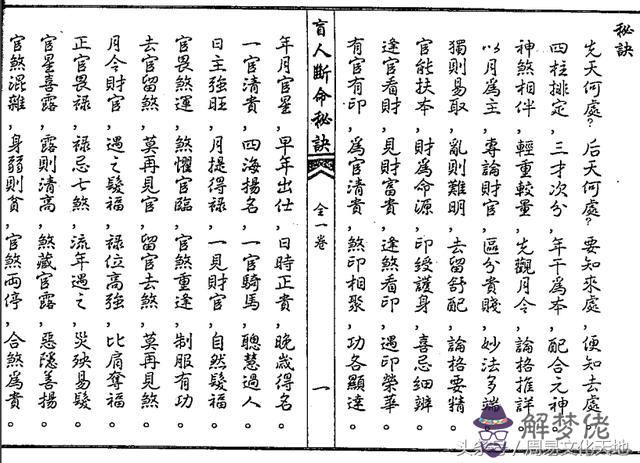 秘訣
先天何處？后天何處？要知來處，便知去處。
四柱排定，三才次分，年干為本，配合元神。
神煞相伴，輕重較量，先觀月令，論格推詳。
以月為主，專論財官，區分貴賤，妙法多端。
獨則易取，亂則難明，去留舒配，論格要精。
官能扶本，財為命源，印綬護身，喜忌細辨。
逢官看財，見財富貴，逢煞看印，遇印榮華。
有官有印，為官清貴，煞印相聚，功各顯達。
盲人斷命秘訣 全一卷 一
年月官星，早年出仕，日時正貴，晚歲得名。
一官清貴，四海揚名，一官騎馬，聰慧過人。
日主強旺，月提得祿，一見財官，自然發福。
官畏煞運，煞懼官臨，官煞重逢，制服有功。
去官留煞，莫再見官，留官去煞，莫再見煞。
月令財官，遇之發福，祿位高強，比肩奪福。
正官畏祿，祿忌七煞，流年遇之，災殃易發。
官星喜露，露則清高，煞藏官露，惡隱善揚。
官煞混雜，身弱則貧，官煞兩停，合煞為貴。
解梦佬
头条号/周易文化天地